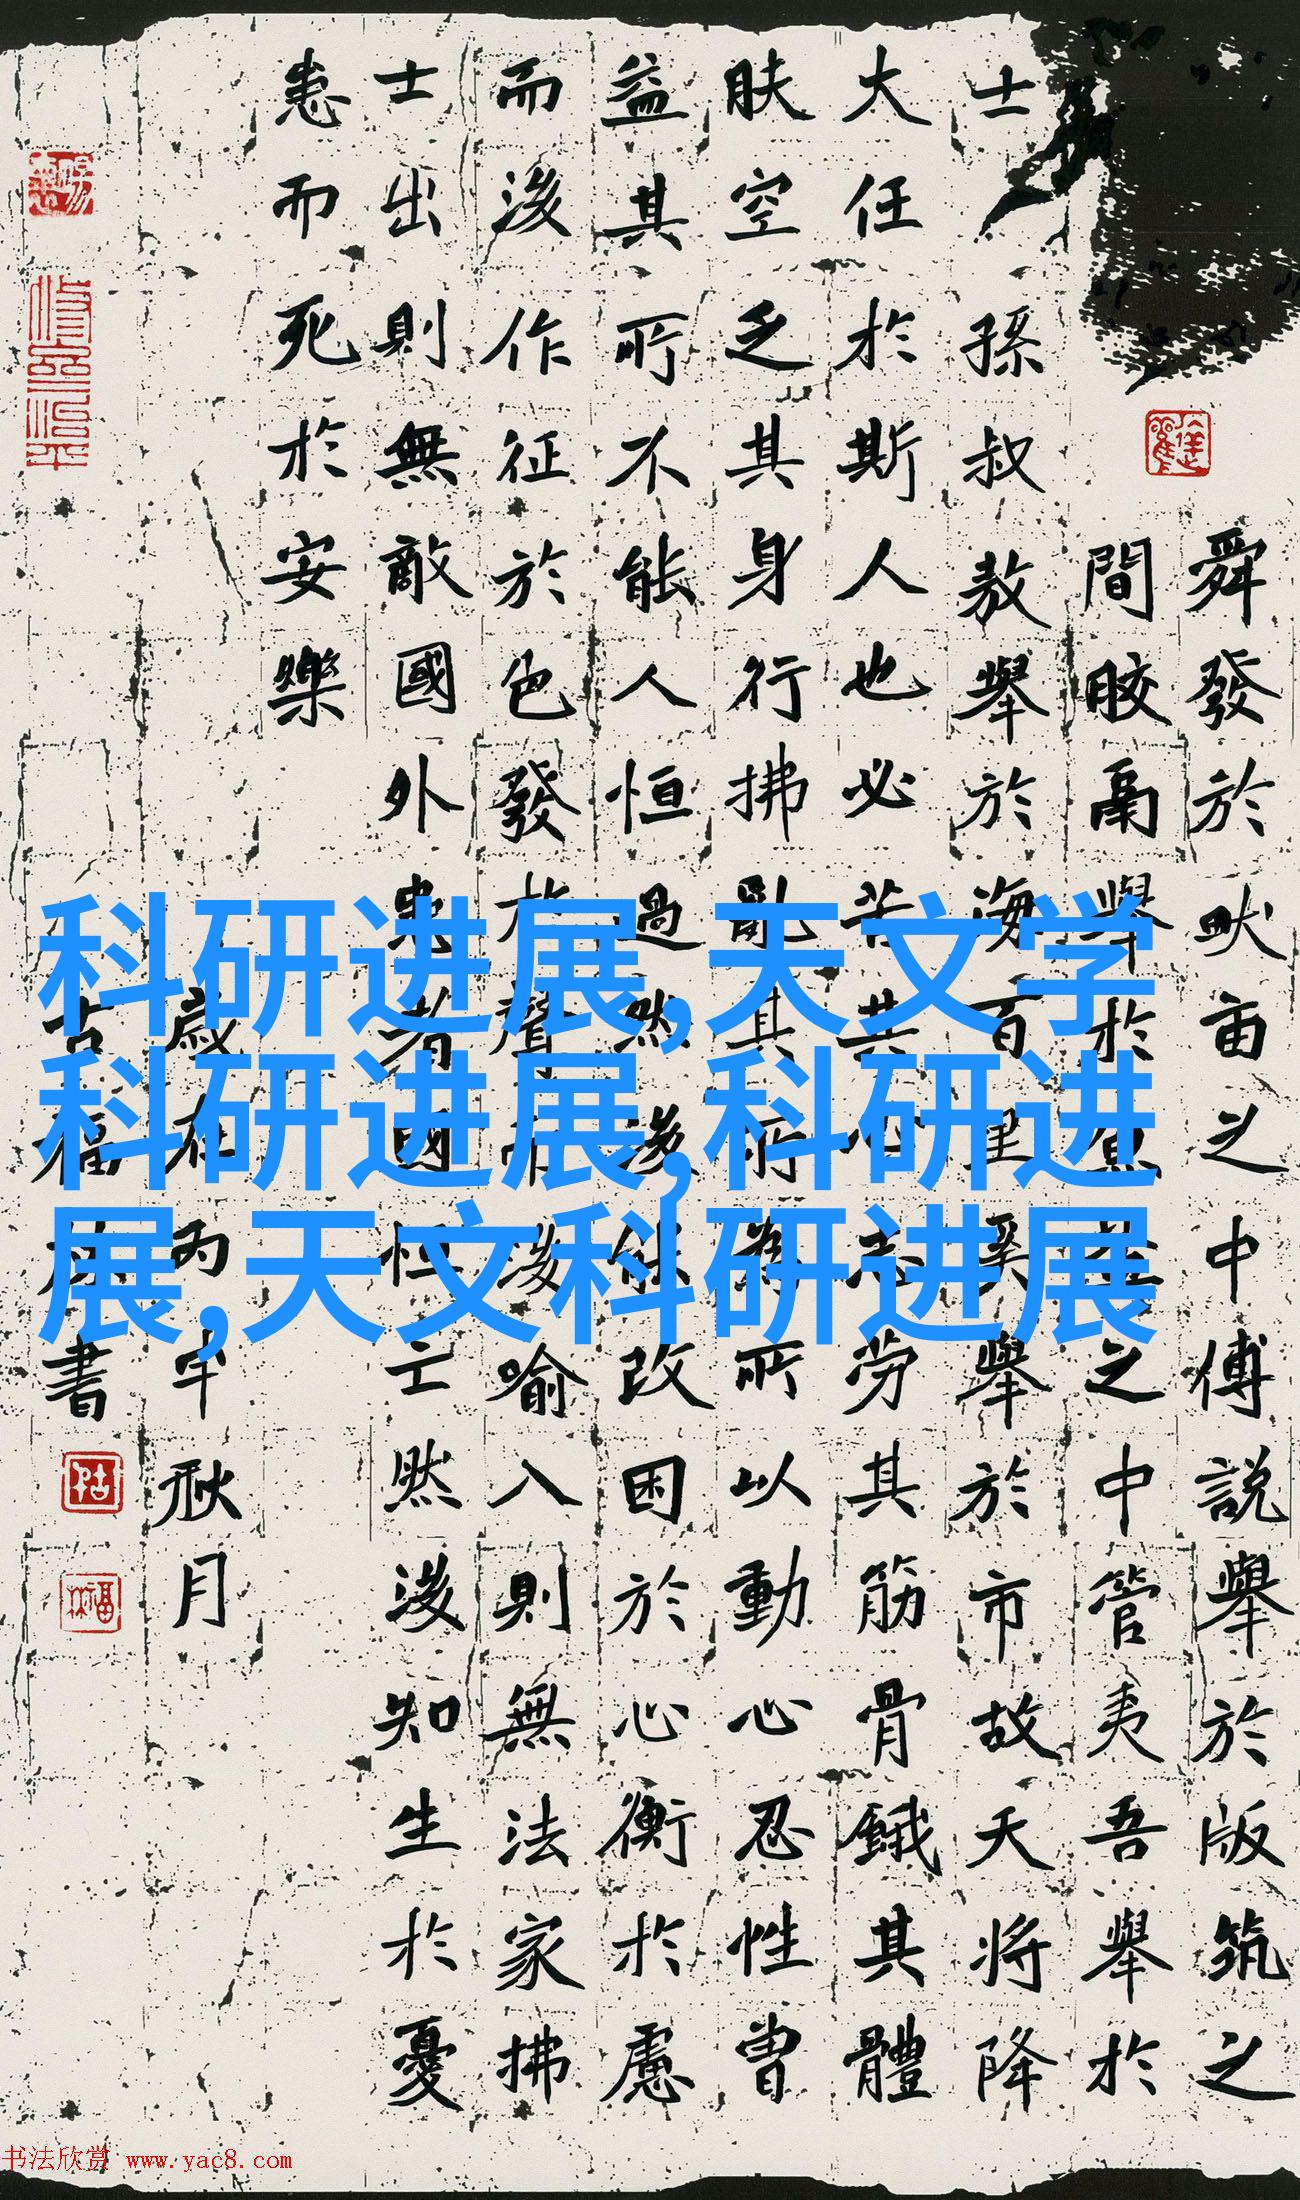 舜發於畎亩之中傅説舉於版筑之
間膠鬲舉於魚盐之中管夷吾舉於
士孫叔敖舉於海百里奚舉於市故天将降
大任於斯人也必苦其心志劳其筋骨餓其體
肤空乏其身行拂亂其所為所以動心忍性曾
益其所不能人恒過然後能改困於心衡於慮
而後作征於色發於聲而後喻入則無法家拂
士出則無敵國外患者國恒亡然後知生於憂
患而死於安樂
歲在丙午秋月
古福書
科研进展,天文学
科研进展,科研进
展,天文科研进展
书法欣赏 www.yac8.com